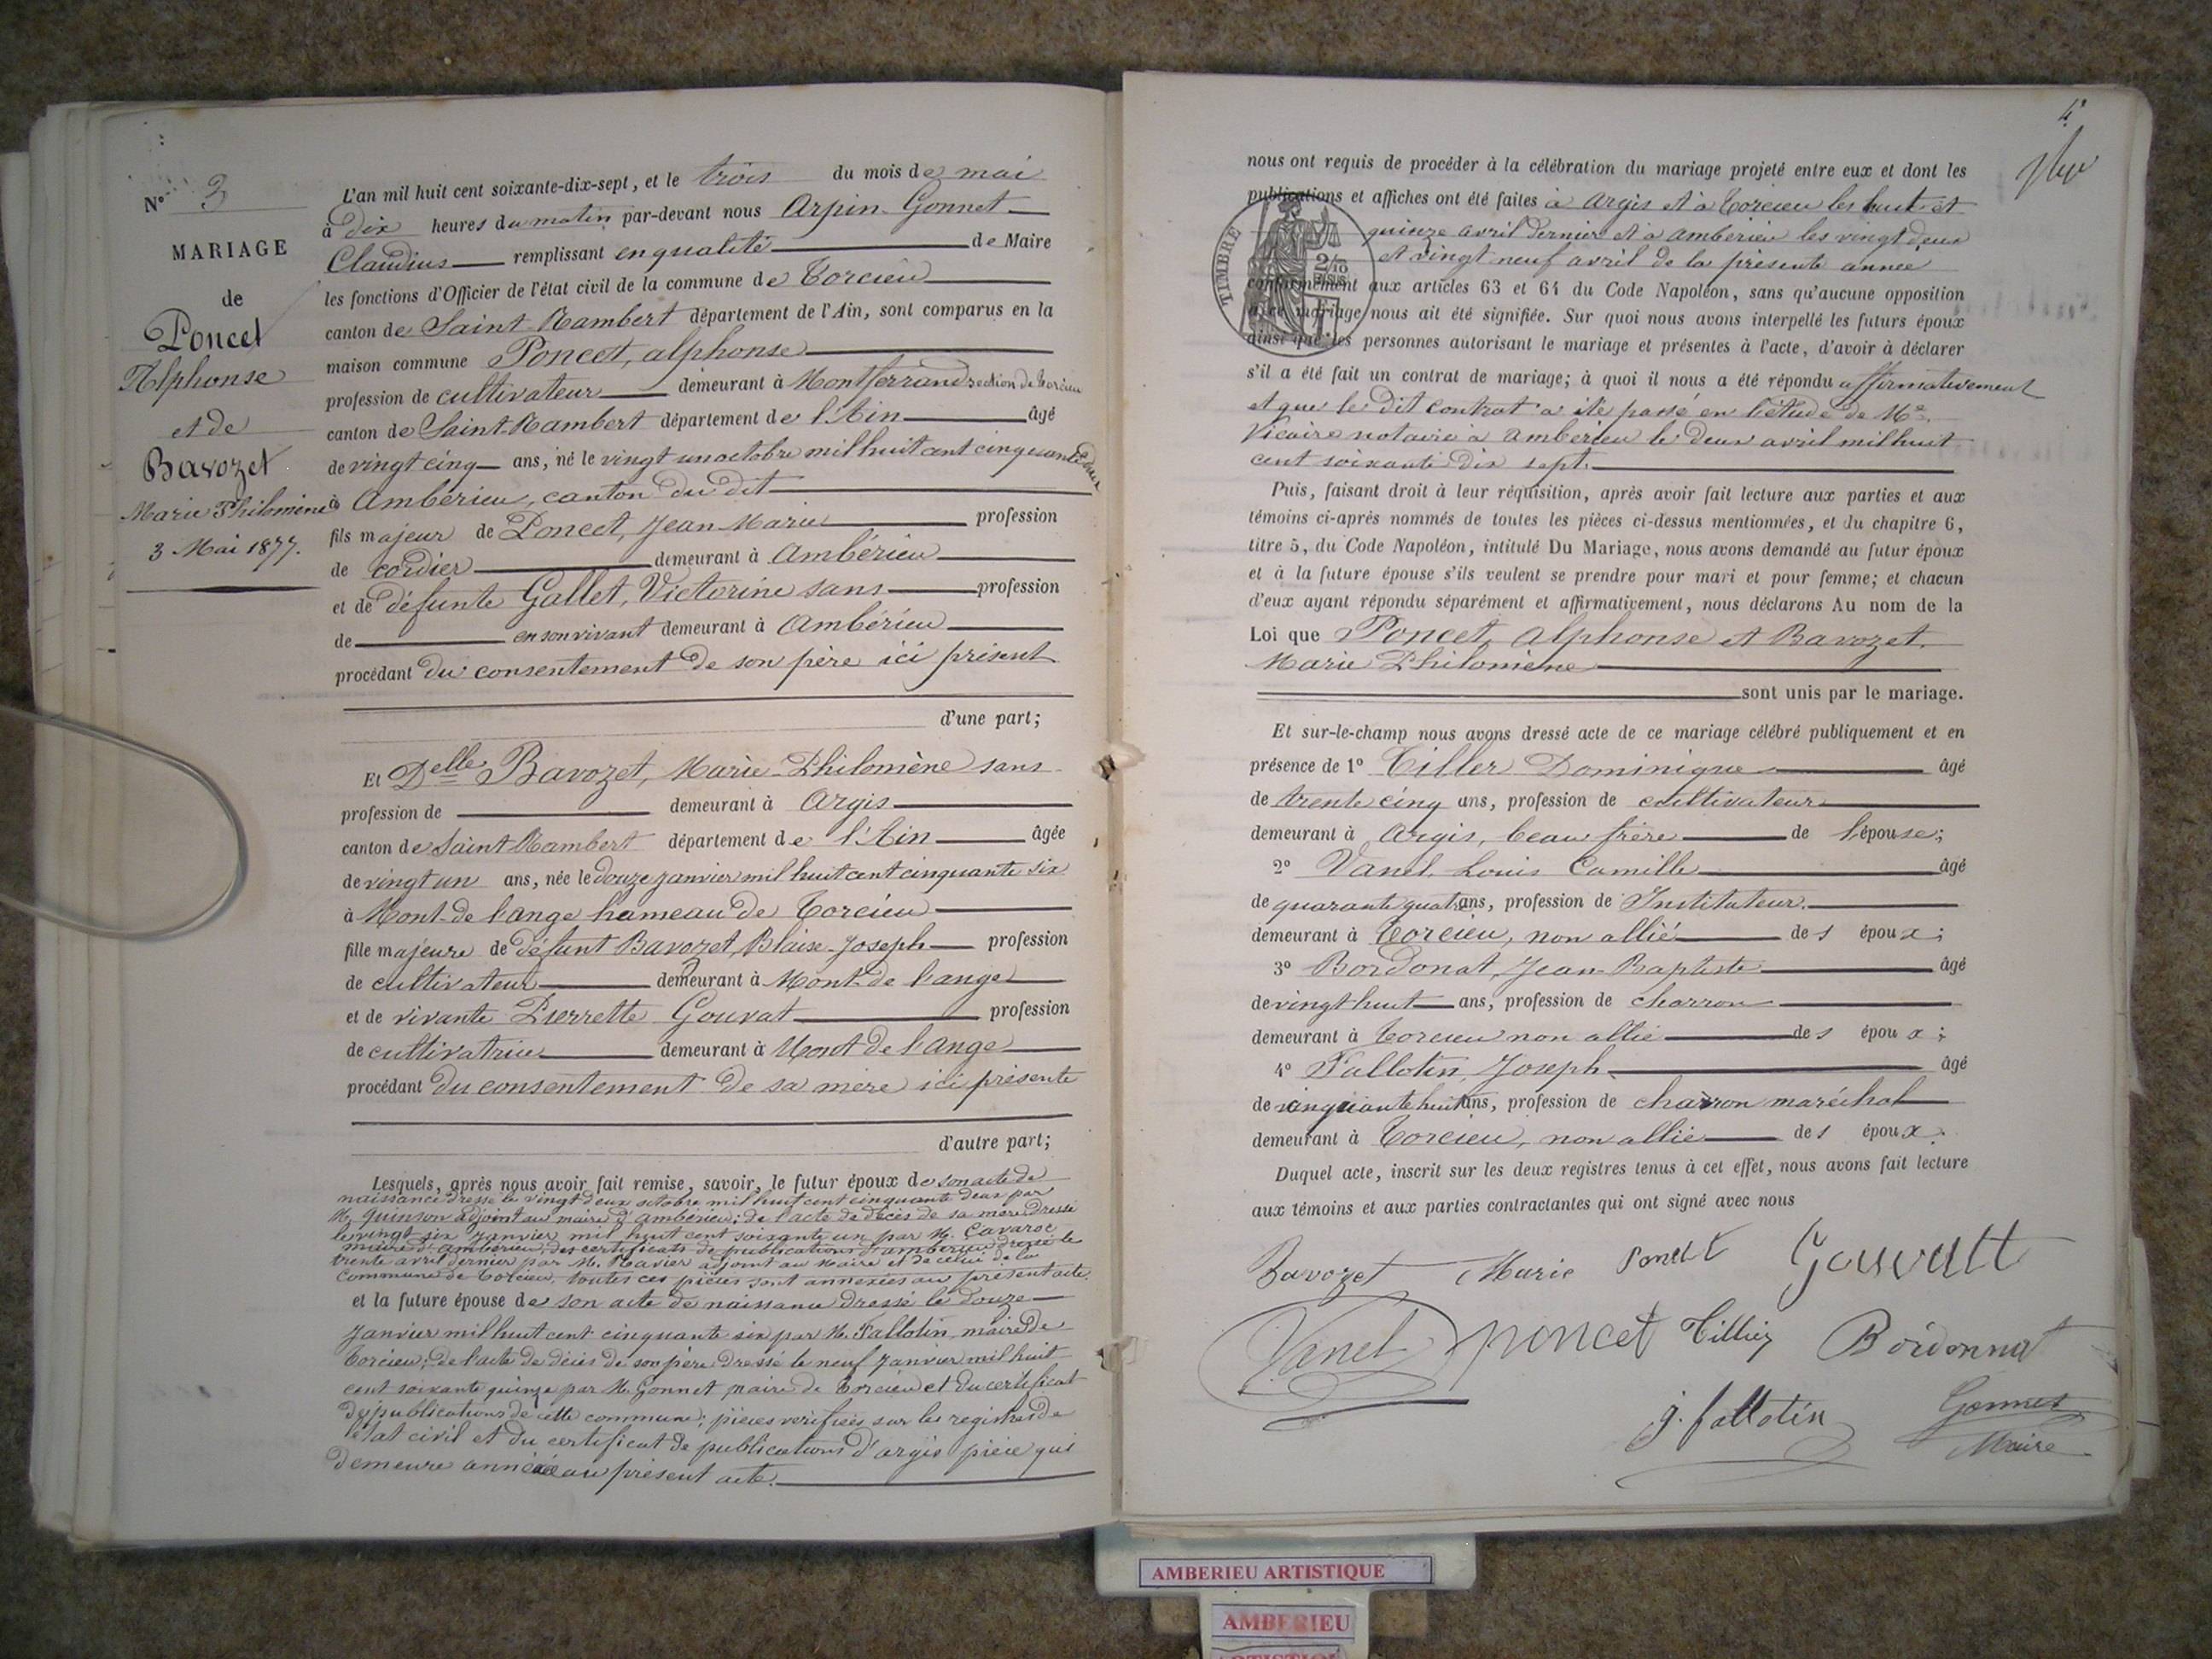 N° 3
MARIAGE
de
Poncet
Alphonse
et de
Bavozet
Marie Philomène
3 Mai 1877.
L'an mil huit cent soixante-dix-sept, et le trois du mois de mai
à dix heures du matin par-devant nous Arpin-Gonnet
Claudius remplissant en qualité de Maire
les fonctions d'Officier de l'état civil de la commune de Torcieu
canton de Saint-Rambert département de l'Ain, sont comparus en la
maison commune Poncet, alphonse
profession de cultivateur demeurant à Montferrand section de Torcieu
canton de Saint-Rambert département de l'Ain âgé
de vingt cinq ans, né le vingt un octobre mil huit cent cinquante deux
à Ambérieu, canton du dit
fils majeur de Poncet, Jean Marie profession
de cordier demeurant à Ambérieu
et de défunte Gallet, Victorine sans profession
de en son vivant demeurant à Ambérieu
procédant du consentement de son père ici présent
d'une part;
Et Delle Bavozet, Marie-Philomène sans
profession de demeurant à Argis
canton de Saint Rambert département de l'Ain âgée
de vingt un ans, née le douze janvier mil huit cent cinquante six
à Mont-de l'ange hameau de Torcieu
fille majeure de défunt Bavozet, Blaise-Joseph profession
de cultivateur demeurant à Mont-de l'ange
et de vivante Pierrette Gouvat profession
de cultivatrice demeurant à Mont de l'ange
procédant du consentement de sa mère ici présente
d'autre part;
Lesquels, après nous avoir fait remise, savoir, le futur époux de son acte de
naissance dressé le vingt deux octobre mil huit cent cinquante deux par
M. Quinson adjoint au maire d'ambérieu; de l'acte de décès de sa mère dressé
le vingt six janvier mil huit cent soixante un par M. Cavaroc
maire d'ambérieu, des certificats de publications d'ambérieu dressé le
trente avril dernier par M. Ravier adjoint au Maire et de celui de la
Commune de Torcieu. toutes ces pièces sont annexées au présent acte.
et la future épouse de son acte de naissance dressé le douze
janvier mil huit cent cinquante six par M. Fallotin maire de
Torcieu; de l'acte de décès de son père dressé le neuf janvier mil huit
cent soixante quinze par M. Gonnet maire de Torcieu et du certificat
de publications de cette commune; pièces vérifiées sur les registres de
l'état civil et du certificat de publications d'argis pièce qui
demeure annexée au présent acte.
4
nous ont requis de procéder à la célébration du mariage projeté entre eux et dont les
publications et affiches ont été faites à Argis et à Torcieu les huit et
quinze avril dernier et à ambérieu les vingt deux
et vingt neuf avril de la présente année
conformément aux articles 63 et 64 du Code Napoléon, sans qu'aucune opposition
à ce mariage nous ait été signifiée. Sur quoi nous avons interpellé les futurs époux
ainsi que les personnes autorisant le mariage et présentes à l'acte, d'avoir à déclarer
s'il a été fait un contrat de mariage; à quoi il nous a été répondu affirmativement
et que le dit contrat a été passé en l'étude de Me
Vicaire notaire à ambérieu le deux avril mil huit
cent soixante dix sept.
TIMBRE
2/10
EN SUS
Puis, faisant droit à leur réquisition, après avoir fait lecture aux parties et aux
témoins ci-après nommés de toutes les pièces ci-dessus mentionnées, et du chapitre 6,
titre 5, du Code Napoléon, intitulé Du Mariage, nous avons demandé au futur époux
et à la future épouse s'ils veulent se prendre pour mari et pour femme; et chacun
d'eux ayant répondu séparément et affirmativement, nous déclarons Au nom de la
Loi que Poncet, alphonse et Bavozet,
Marie Philomène
sont unis par le mariage.
Et sur-le-champ nous avons dressé acte de ce mariage célébré publiquement et en
présence de 1° Tiller Dominique âgé
de trente cinq ans, profession de cultivateur
demeurant à Argis, beau frère de l'épouse;
2° Vanel, Louis Camille âgé
de quarante quatre ans, profession de Instituteur.
demeurant à Torcieu, non allié des époux;
3° Bordonat, Jean-Baptiste âgé
de vingt huit ans, profession de charron
demeurant à Torcieu non allié des époux;
4° Fallotin, Joseph âgé
de cinquante huit ans, profession de charron maréchal
demeurant à Torcieu, non allié des époux.
Duquel acte, inscrit sur les deux registres tenus à cet effet, nous avons fait lecture
aux témoins et aux parties contractantes qui ont signé avec nous
Bavozet Marie Poncet Gouvatt
Vanel poncet Tillier Bordonnat
j. fallotin Gonnet
Maire
AMBERIEU ARTISTIQUE
AMBERIEU
ARTISTIQUE